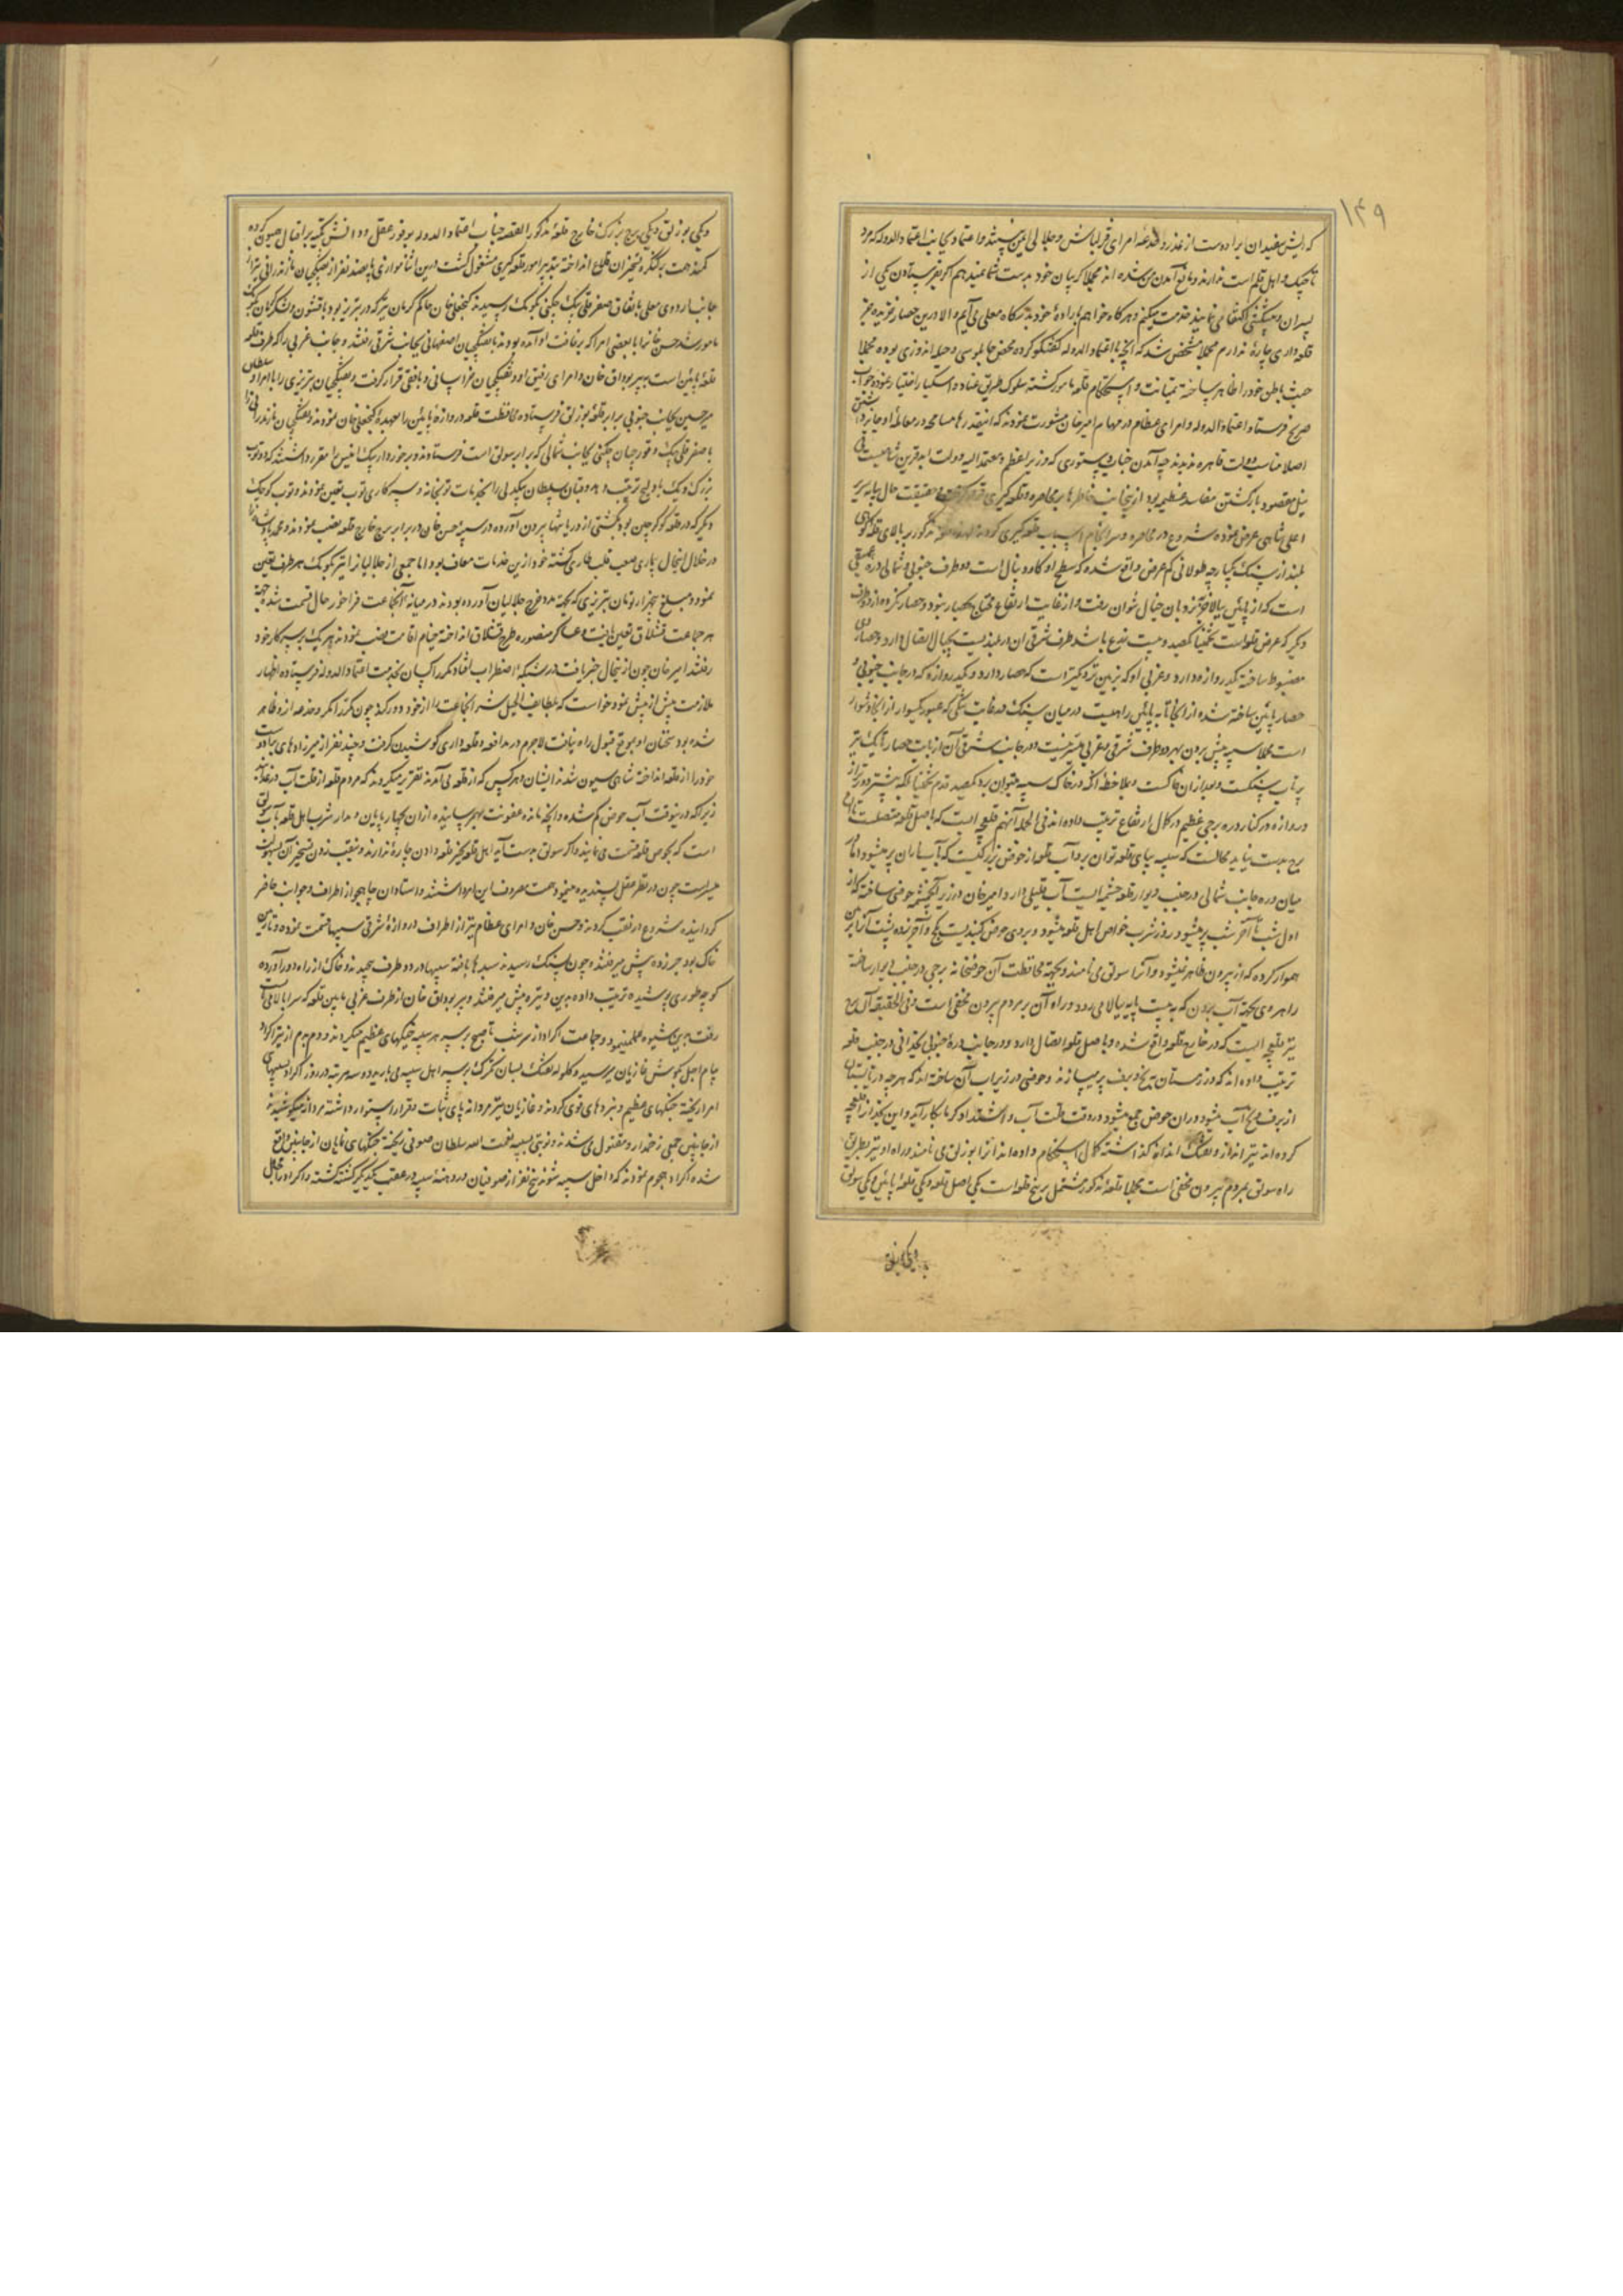 ۱۴۹
که ریش سفیدان برادوست از غدر و خدعه امرای قزلباش و جلالی ایمن نیستند و اعتماد بجانب اعتماد الدوله که مرد
تاجیک و اهل قلم است ندارند و مانع آمدن من شده اند مجملا کریبان خود بدست شما نمیدهم اگر بفرستادن یکی از
پسران و پیشکش اکتفا می نمایند خدمت میکنم و هر کاه خواهم باراده خود بدرکاه معلی می آیم و الا درین حصار خزیده بجز
قلعه داری چاره ندارم مجملا مشخص شد که آنچه با اعتماد الدوله گفتگو کرده محض چابلوسی و حیله اندوزی بوده مجملا
خبث باطن خود را ظاهر ساخته بمتانت و استحکام قلعه مغرور کشته سلوک طریق عناد و استکبار اختیار نمود و جواب
صریح فرستاد اعتماد الدوله و امرای عظام در مهام امیر خان مشورت نمودند که اینقدرها مسامحه در معامله او جایز داشتن
اصلا مناسب دولت قاهره ندیدند چه آمدن جناب دستوری که وزیر اعظم و معتمد الیه دولت ابد قرین شاهیست بی
نیل مقصود بازکشتن مفاسد عظیمه بود از اینجانب خاطرها بر محاصره و قلعه کیری قرار گرفته حقیقت حال بپایه سریر
اعلی شاهی عرض نموده شروع در محاصره و سرانجام اسباب قلعه کیری کردند قلعه مذکور بر بالای قله کوهی
بلند از سنک یکپارچه طولانی کم عرض واقع شده که سطح او کاودنبال است دو طرف جنوبی و شمالی دره عمیقی
است که از پائین ببالا جز نردبان خیال نتوان رفت و از غایت ارتفاع محتاج بحصار نبود و حصار نکرده از دو طرف
دیگر که عرض قلعه است تخمیناً یکصد و بیست ذرع باشد طرف شرقی آن در بلندیست بجبال اتصال دارد و حصاری
مضبوط ساخته یکدروازه دارد و غربی او که بزمین نزدیکتر است که حصار دارد و یکدروازه که در جانب جنوبی
حصار پائین ساخته شده از آنجا تا به پائین راهیست در میان سنک در غایت تنگی که عبور یکسوار از آنجا دشوار
است مجملا سیبه پیش بردن بهر دو طرف شرقی و غربی میسر نیست و در جانب شرقی آن از پای حصار تا یک تیر
پرتاب سنگست و بعد از آن خاکست و بملاحظه آنکه در خاک سیبه میتوان برد یکصد قدم تخمیناً بلکه بیشتر دورتر از
دروازه در کنار دره برجی عظیم در کمال ارتفاع ترتیب داده اند فی الجمله آنهم قلعچه ایست که باصل قلعه متصلست تا آن
برج بدست نیاید محالست که سیبه بپای قلعه توان برد آب قلعه از حوض بزرکیست که از آب باران پر میشود اما در
میان دره جانب شمالی در جنب دیوار قلعه چشمه ایست آب قلیلی دارد امیر خان در زیر آنچشمه حوضی ساخته که از
اول شب تا آخر شب پر میشود روز شرب خواص اهل قلعه میشود و بر روی حوض کنبدیست بکچ و آجر زده پشت آنرا بزمین
هموار کرده که از بیرون ظاهر نمیشود و آنرا سولق می نامند و بجهة محافظت آن حوضخانه برجی در جنب دیوار ساخته
راهروی بجهة آب بردن که به بیست پایه ببالا می رود و راه آن بر مردم بیرون مخفی است و فی الحقیقه آن برج
نیز قلعچه ایست که در خارج قلعه واقع شده و باصل قلعه اتصال دارد و در جانب دره جنوبی یخدانی در جنب قلعه
ترتیب داده اند که در زمستان یخ و برف پر میسازند و حوضی در زیر آب آن ساخته اند که هر چه در تابستان
از برف و یخ آب میشود در آن حوض جمع میشود و در وقت قلت آب و اشتداد کرما بکار آید و این یخدان را قلعچه
کرده اند تیر انداز و تفنک انداز گذاشته کمال استحکام داده اند آنرا بوزلق می نامند و راه او نیز بطریق
راه سولق بر مردم بیرون مخفی است مجملا قلعه مذکور مشتمل بر پنج قلعه است یکی اصل قلعه و یکی قلعه پائین و یکی سولق
و یکی بوزلق
و یکی بوزلق و یکی برج بزرک خارج قلعه مذکور القصه جناب اعتماد الدوله بوفور عقل و دانش تکیه بر اقبال همیون کرده
کمند همت بر کنگره تسخیر آن قلاع انداخته بتدبیر امور قلعه کیری مشغول کشت درین اثنا موازی پانصد نفر از تفنکچیان مازندرانی نیز از
جانب اردوی معلی باتفاق صفر قلی بیک چکنی بکومک رسیدند کنجعلی خان حاکم کرمان نیز که در تبریز بود با قشون و لشکر کرمان بکومک
مامور شد حسن خان با بعضی امرا که برفاقت او آمده بودند با تفنکچیان اصفهانی بجانب شرقی رفتند و جانب غربی را که طرف قلعه
قلعه پائین است به پیر بوداق خان و امرای رفیق او و تفنکچیان خراسانی و بافقی قرار گرفت و تفنکچیان تبریزی را با امراو سلطان
میر حسین بجانب جنوبی برابر قلعه بوزلق فرستاده محافظت قلعه و دروازه پائین را بعهده کنجعلی خان نمودند و تفنکچیان مازندرانی را
با صفر قلی بیک و قورچیان چکنی بجانب شمالی که برابر سولق است فرستادند و برخوردار بیک انیس مقرر داشتند که دو توپ
بزرک و یک بادلیج ترتیب دهد و قبان سلطان بیکدلی را بخدمات توپخانه و سرکاری توپ تعیین نمودند و توپ کوچک
دیگر که در قلعه کوکرچین بود بکشتی از دریا بتنها بیرون آورده در سیبه حسن خان در برابر برج خارج قلعه نصب نمودند و محمد پاشا را
در خلال اینحال بیماری صعب قلب طاری کشته خود ازین خدمات معاف بود اما جمعی از جلالیان را نیز بکومک هر طرف تعیین
نمود و مبلغ سه هزار تومان تبریزی که بجهة مدد خرج جلالیان آورده بودند در میانه آنجماعت فراخور حال قسمت شد و بجهة
هر جماعت قشلاق تعیین یافت و عساکر منصوره طرح قشلاق انداخته خیام اقامت نصب نمودند و هر یک بر سر کار خود
رفتند امیر خان چون از اینحال خبر یافت در شبکه اضطراب افتاد مکرر کسان بخدمت اعتماد الدوله فرستاده اظهار
ملازمت پیش از پیش نمود خواست که بلطایف الحیل شر آنجماعت را از خود دور کند چون مکررا مکر و خدعه از و ظاهر
شده بود سخنان او بموقع قبول راه نیافت لاجرم در مدافعه و قلعه داری کوشیدن گرفت و چند نفر از میرزاده های برادوست
خود را از قلعه انداخته شاهی سیون شدند ایشان و هر کس که از قلعه می آمدند تقریر میکردند که مردم قلعه از قلت آب در عذابند
زیرا که درینوقت آب حوض کم شده و آنچه مانده عفونت بهم رسانیده از آن بچهارپایان و مدار شرب اهل قلعه بآب سولق
است که بحوض قلعه قسمت می نمایند و اگر سولق بدست آید اهل قلعه بجز قلعه دادن چاره ندارند و بنقب زدن تسخیر آن بسهولت
میسر است چون در نظر عقل پسندیده مینمود همت مصروف این امر داشتند و استادان چاهجو از اطراف و جوانب حاضر
کردانیده شروع در نقب کردند و حسن خان و امرای عظام نیز از اطراف دروازه شرقی سیبها قسمت نموده و تا زمین
خاک بود جر زده پیش میرفتند و چون بسنک رسیدند سبدها بافته سیبها در دو طرف چیدند و خاک از راه دور آورده
کوچه طوری پوشیده ترتیب داده بدین وتیره پیش میرفتند و پیر بوداق خان از طرف غربی مابین قلعه که سرابالا می بایست
رفت بدین شیوه عمل مینمود و جماعت اکراد از سر شب تا صبح بر سر هر سیبه جنگهای عظیم میکردند و دم بدم از تیر اکراد
پیام اجل بکوش غازیان میرسید و کلوله تفنک بسان تکرک بر سر اهل سیبه می بارید دو سه مرتبه در روز اکراد بسیبهای
امرا ریخته جنگهای عظیم و نبردهای قوی کردند و غازیان نیز مردانه پای ثبات و قرار استوار داشته مردانه میکوشیدند
از جانبین جمعی زخمدار و مقتول می شدند و نوبتی بسیبه نعمت الله سلطان صوفی ریخته جنگهای نمایان از جانبین واقع
شده اکراد هجوم نمودند که داخل سیبه شوند پنج نفر از صوفیان در دهنه سیبه در عقب یکدیگر کشته کشته و اکراد را مجال